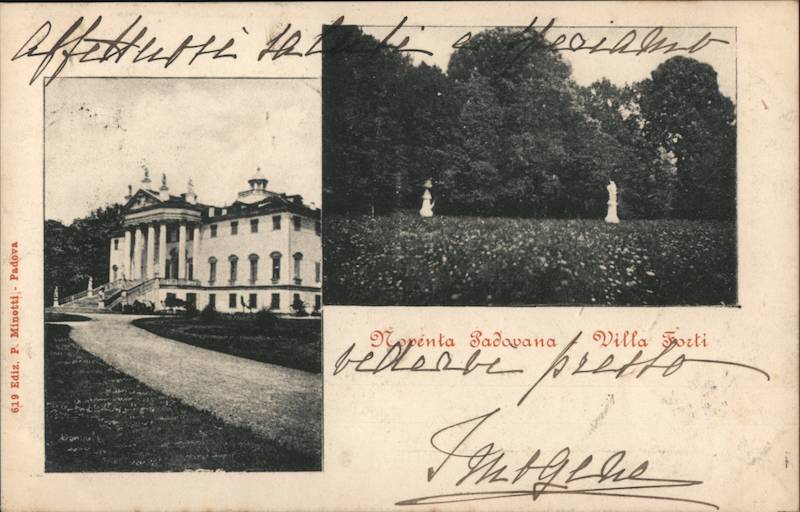 Affettuosi saluti e speriamo
Noventa Padovana Villa Forti
vedervi presto
Imogene
619 Ediz. P. Minotti, - Padova